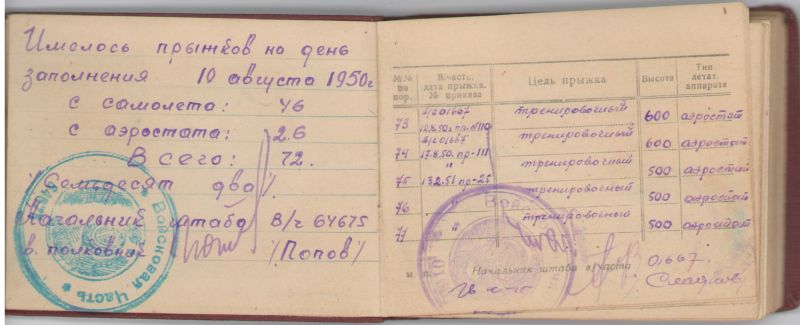 Имелось прыжков на день
заполнения 10 августа 1950г
с самолета: 46
с аэростата: 26
Всего: 72.
"Семьдесят два".
Начальник штаба в/ч 64675
полковник /Попов/
Войсковая Часть
№№ по пор.
В/часть, дата прыжка. № приказа
Цель прыжка
Высота
Тип летат. аппарата
73 12.8.50. пр. №110 тренировочный 600 аэростат
74 17.8.50. пр-111 тренировочный 600 аэростат
75 13.2.51. пр-25 тренировочный 500 аэростат
76 " тренировочный 500 аэростат
77 " тренировочный 500 аэростат
Начальник штаба в/части 01667.